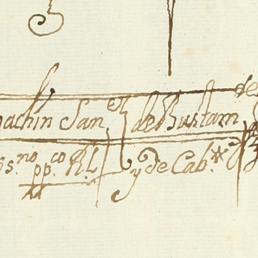 de
oachin San de Bustam
s.no pp.co R.l y de Cab.